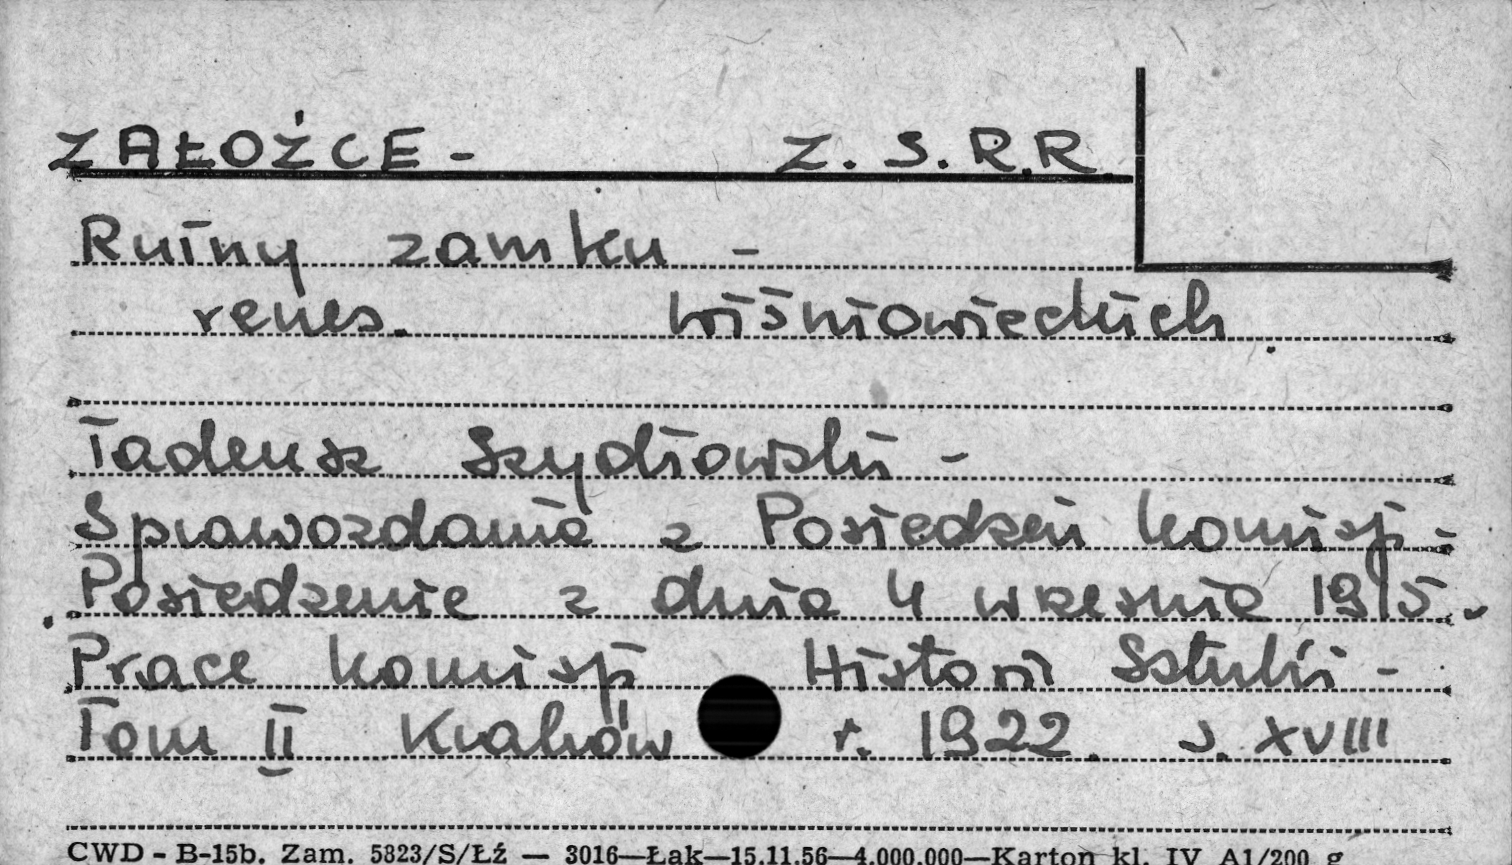 ZAŁOŹCE - Z.S.R.R.
Ruiny zamku -
renes. Wiśniowieckich
Tadeusz Szydłowski -
Sprawozdania z Posiedzeń Komisji -
Posiedzenie z dnia 4 wrzesnia 1915.
Prace Komisji Historii Sztuki -
Tom II Kraków r. 1922. s. XVIII
CWD - B-15b. Zam. 5823/S/Łź — 3016—Łąk—15.11.56—4.000.000—Karton kl. IV A1/200 g